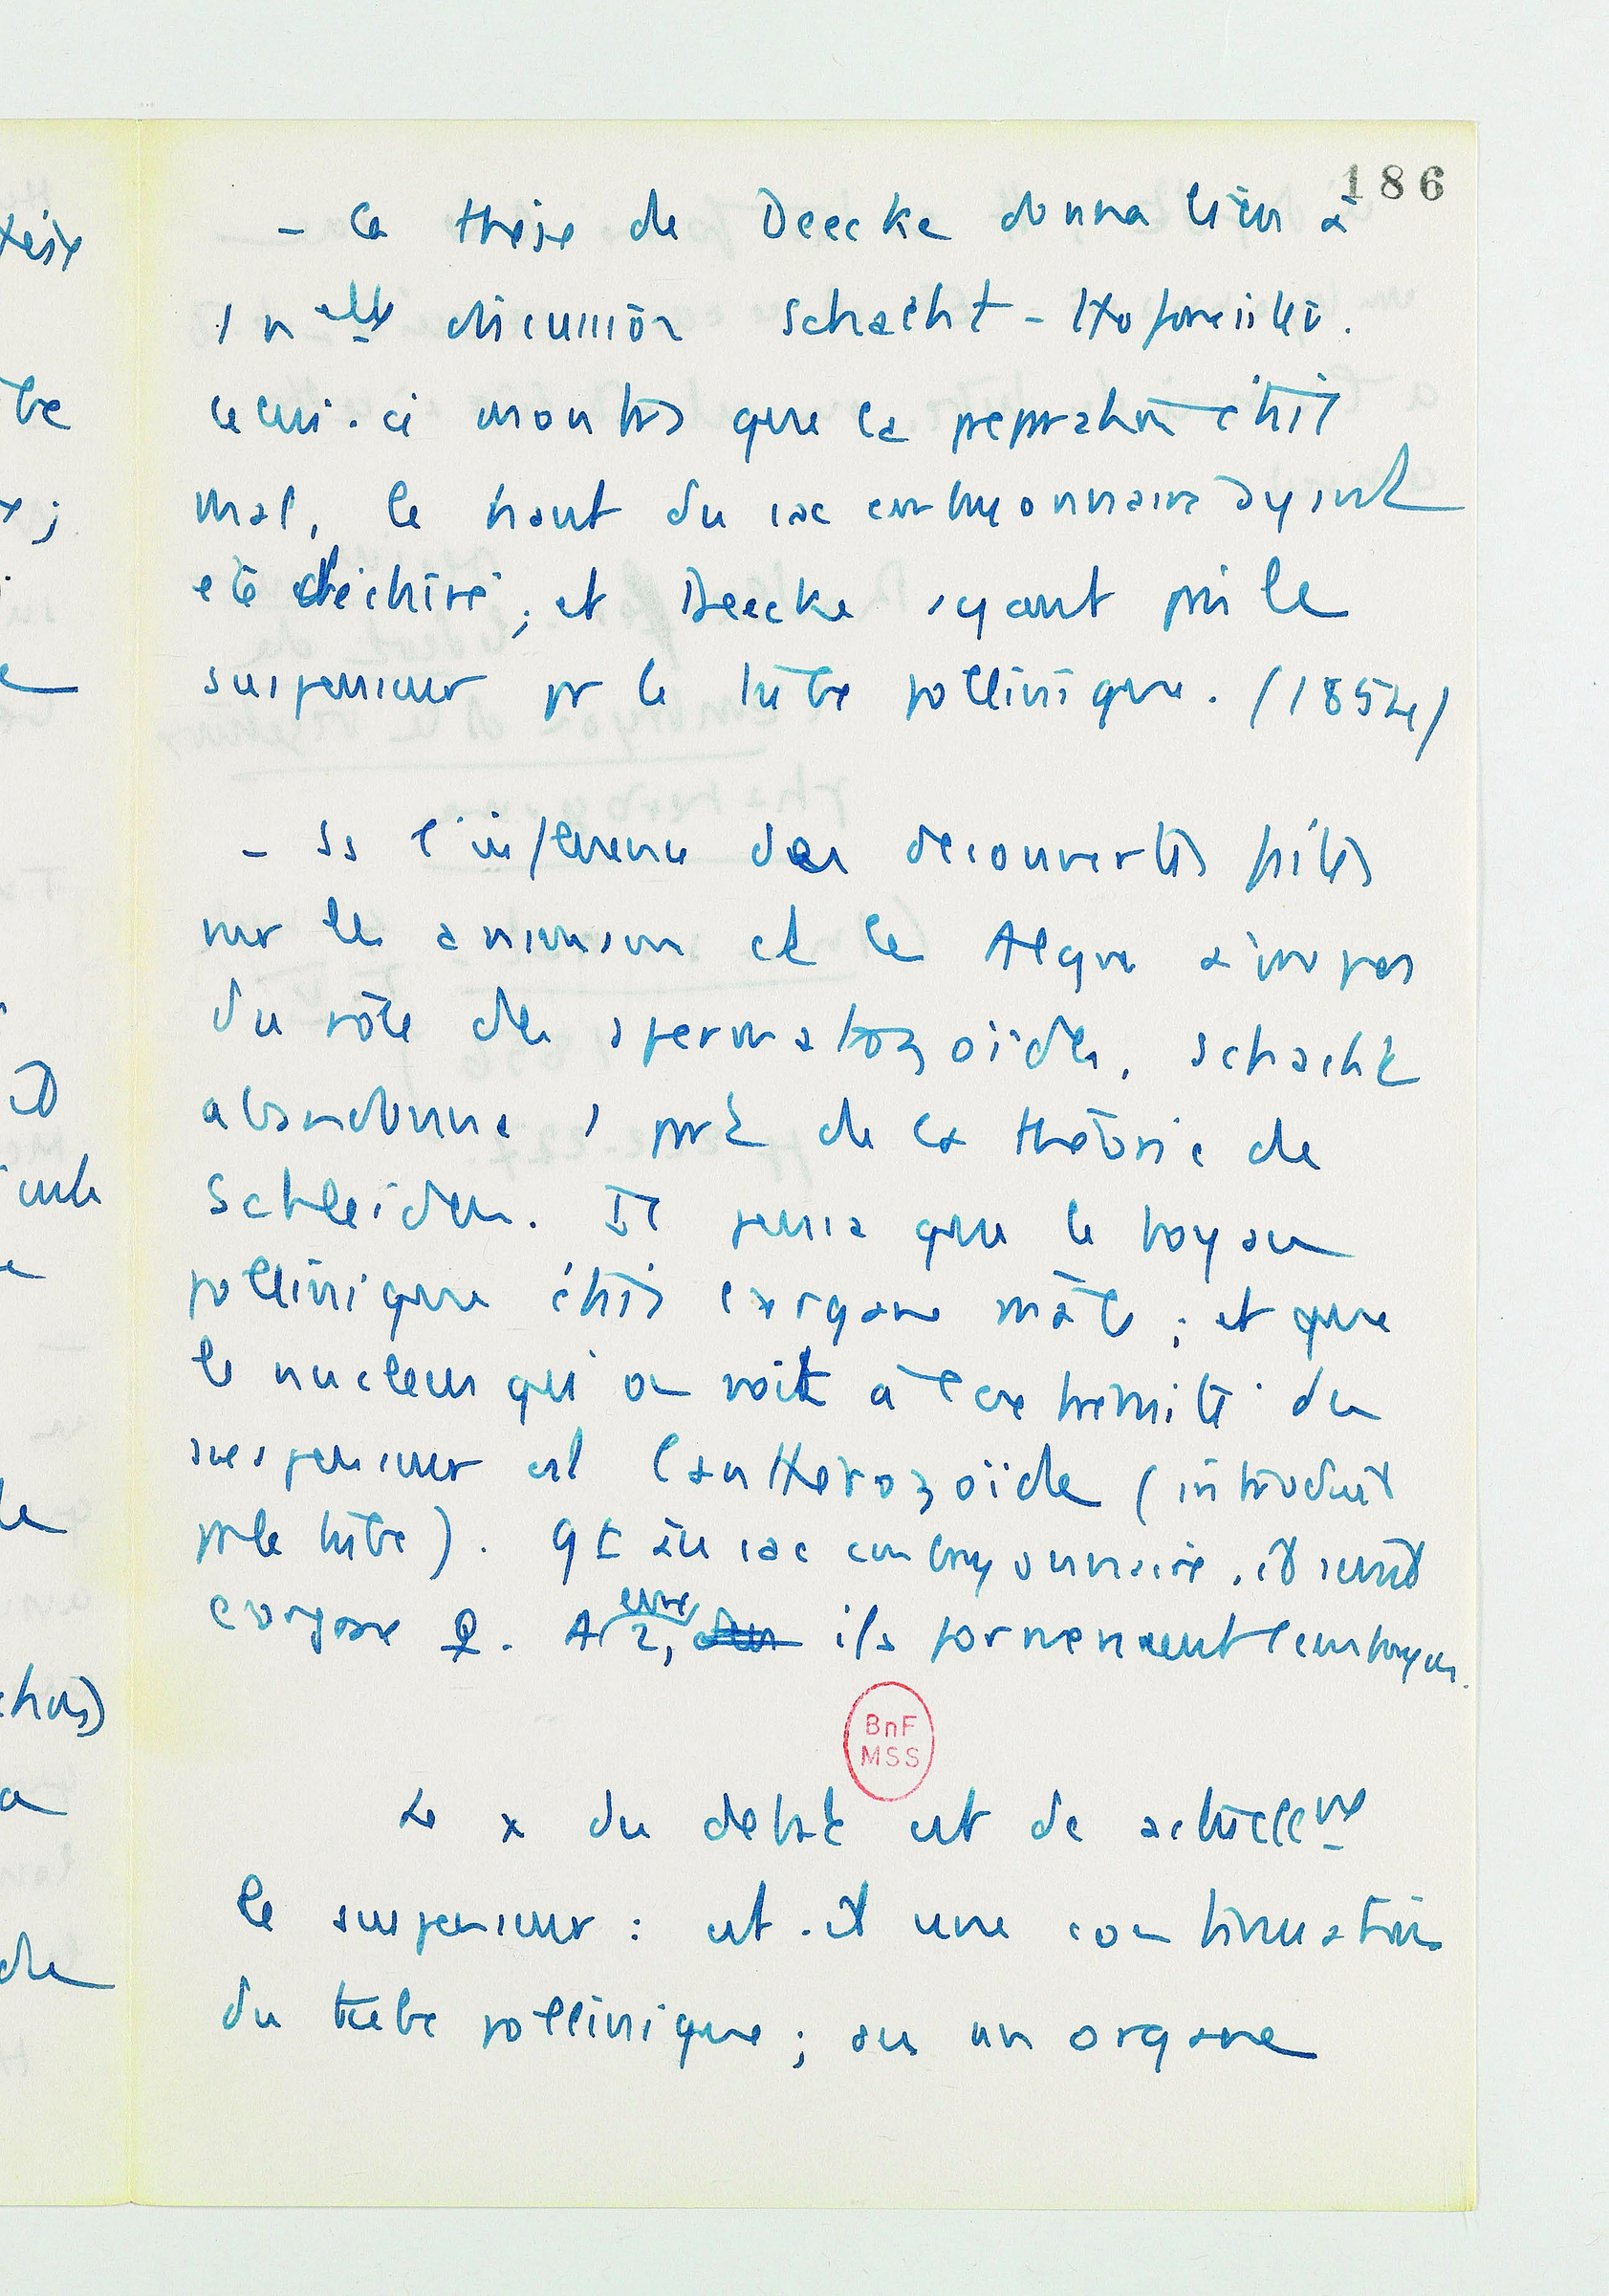 186
- la thèse de Deecke donna lieu à
1 nelle discussion Schacht - Hofmeister.
celui-ci montra que la preparation était
mal, le haut du sac embryonnaire ayant
eté déchiré ; et Deecke ayant pris le
suspenseur pr le tube pollinique. (1854)
- ss l'influence des decouvertes faites
sur les animaux et les Algues à propos
du rôle des spermatozoïdes, Schacht
abandonna 1 part de la théorie de
Schleiden. Il pensa que le boyau
pollinique était l'organe mâle ; et que
le nucleus qu'on voit à l'extremité du
suspenseur est l'anthérozoïde (introduit
par le tube). Qt au sac embryonnaire, il serait
l'organe ♀. A eux 2, ils formeraient l'embryon.
BnF
MSS
Le x du debat est de actuellemt
le suspenseur : est-il une continuation
du tube pollinique ; ou un organe